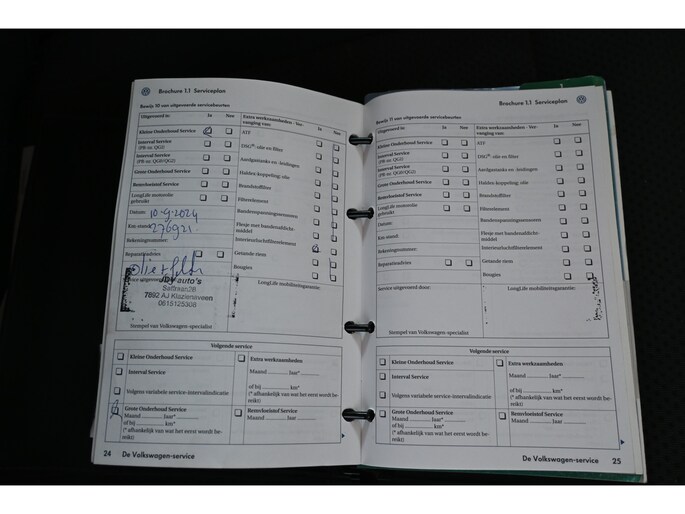 Brochure 1.1 Serviceplan
Bewijs 10 van uitgevoerde servicebeurten
Uitgevoerd te: Ja Neen
Kleine Onderhoud Service
Interval Service
(PR-nr. QG1)
Interval Service
(PR-nr. QG0/QG2)
Grote Onderhoud Service
Remvloeistof Service
LongLife motorolie
gebruikt
Datum: 10-9-2024
Km-stand: 276921
Rekeningnummer:
Reparatieadvies
Service uitgevoerd door:
JBV auto's
7892 AJ Klazienaveen
0615125308
Stempel van Volkswagen-specialist
Extra werkzaamheden - Ver-
vanging van: Ja Nee
ATF
DSG®-olie en filter
Aardgastanks en -leidingen
Haldex-koppeling; olie
Brandstoffilter
Filterelement
Bandenspanningssensoren
Flesje met bandenafdicht-
middel
Interieurluchtfilterelement
Getande riem
Bougies
LongLife mobiliteitsgarantie:
Volgende service
Kleine Onderhoud Service
Interval Service
Volgens variabele service-intervalindicatie
Grote Onderhoud Service
Maand ........... Jaar* ...........
of bij ........... km*
(* afhankelijk van wat het eerst wordt be-
reikt)
Extra werkzaamheden
Maand ........... Jaar* ...........
of bij ........... km*
(* afhankelijk van wat het eerst wordt be-
reikt)
Remvloeistof Service
Maand ........... Jaar* ...........
24 De Volkswagen-service
Brochure 1.1 Serviceplan
Bewijs 11 van uitgevoerde servicebeurten
Uitgevoerd te: Ja Neen
Kleine Onderhoud Service
Interval Service
(PR-nr. QG1)
Interval Service
(PR-nr. QG0/QG2)
Grote Onderhoud Service
Remvloeistof Service
LongLife motorolie
gebruikt
Datum:
Km-stand:
Rekeningnummer:
Reparatieadvies
Service uitgevoerd door:
Stempel van Volkswagen-specialist
Extra werkzaamheden - Ver-
vanging van: Ja Nee
ATF
DSG®-olie en filter
Aardgastanks en -leidingen
Haldex-koppeling; olie
Brandstoffilter
Filterelement
Bandenspanningssensoren
Flesje met bandenafdicht-
middel
Interieurluchtfilterelement
Getande riem
Bougies
LongLife mobiliteitsgarantie:
Volgende service
Kleine Onderhoud Service
Interval Service
Volgens variabele service-intervalindicatie
Grote Onderhoud Service
Maand ........... Jaar* ...........
of bij ........... km*
(* afhankelijk van wat het eerst wordt be-
reikt)
Extra werkzaamheden
Maand ........... Jaar* ...........
of bij ........... km*
(* afhankelijk van wat het eerst wordt be-
reikt)
Remvloeistof Service
Maand ........... Jaar* ...........
De Volkswagen-service 25